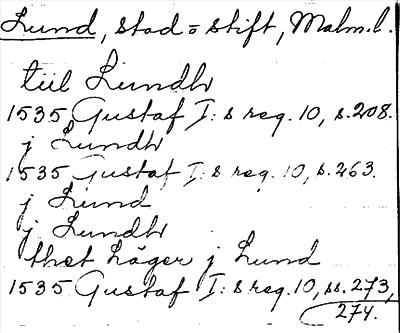 Lund, stad o stift, Malm.l.
till Lundh
1535 Gustaf I:s reg. 10, s. 208.
j Lundh
1535 Gustaf I:s reg. 10, s. 263.
j Lund
j Lundh
thet läger j Lund
1535 Gustaf I:s reg. 10, ss. 273,
274.